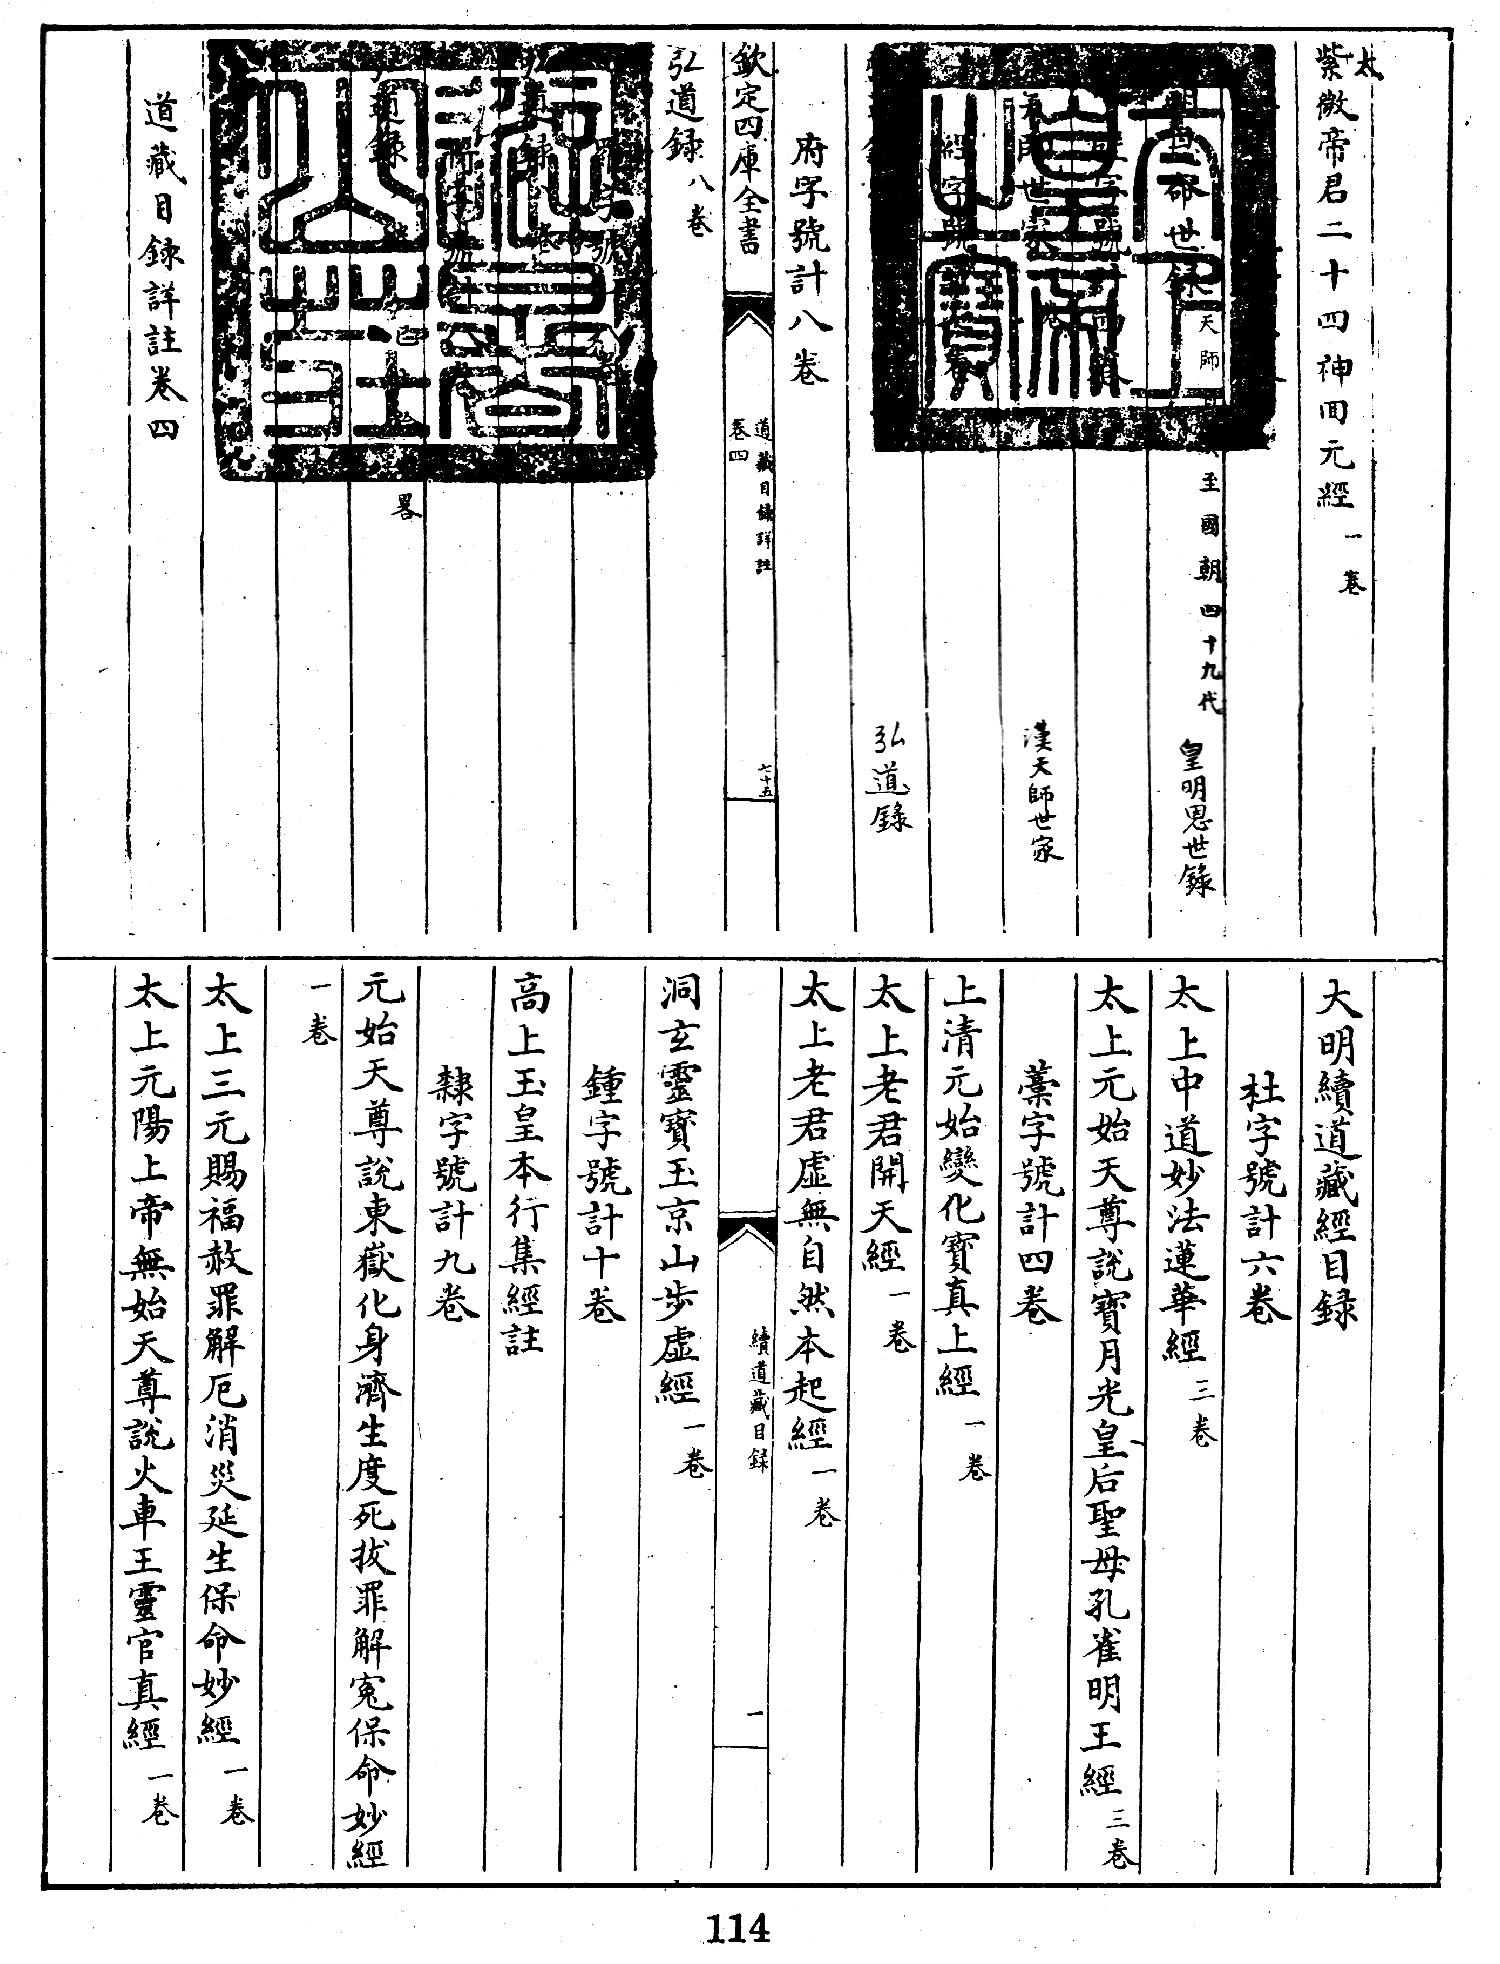 太
紫微帝君二十四神回元經 一卷
皇明恩命世錄 天師 至國朝四十九代
皇明恩世錄
字號計四卷
天師世家
漢天師世家
經字號
弘道錄
府字號計八卷
欽定四庫全書
道藏目録詳註
卷四
七十五
弘道録 八卷
羅字號
道録
將字號
道録
畧
道藏目録詳註卷四
大明續道藏經目録
杜字號計六卷
太上中道妙法蓮華經 三卷
太上元始天尊說寶月光皇后聖母孔雀明王經 三卷
藁字號計四卷
上清元始變化寶真上經 一卷
太上老君開天經 一卷
太上老君虛無自然本起經 一卷
續道藏目録
一
洞玄靈寶玉京山步虛經 一卷
鍾字號計十卷
高上玉皇本行集經註
隸字號計九卷
元始天尊說東嶽化身濟生度死拔罪解寃保命妙經
一卷
太上三元賜福赦罪解厄消災延生保命妙經 一卷
太上元陽上帝無始天尊說火車王靈官真經 一卷
114